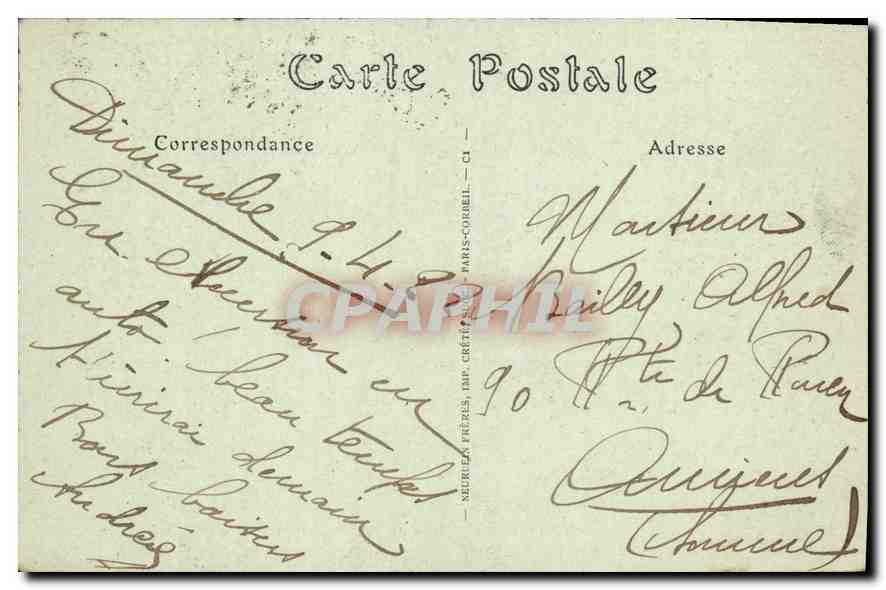 Carte Postale
Correspondance
Adresse
Dimanche 9-4-
En excursion en
auto, beau temps
t'écrirai demain
Bons baisers
Andrée
NEURDEIN FRÈRES, IMP. CRÉTÉ, SUCC. — PARIS-CORBEIL. — CI
Monsieur
Bailly Alfred
90 Rte de Rouen
Amiens
(Somme)
CPAPHIL